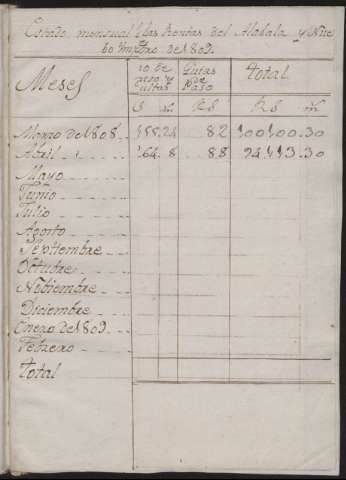 Estado mensual de las Rentas del Alcabala y Nue
bo Impto. de 1802.
Meses
Guias de Paso
Total
S m. RS RS m
Marzo de 1808. 155.24 82 100100.30
Abril 164.8 88 94113.30
Mayo
Junio
Julio
Agosto
Septtembre
Octubre
Nobiembre
Diciembre
Enero de 1809
Febrero
Total